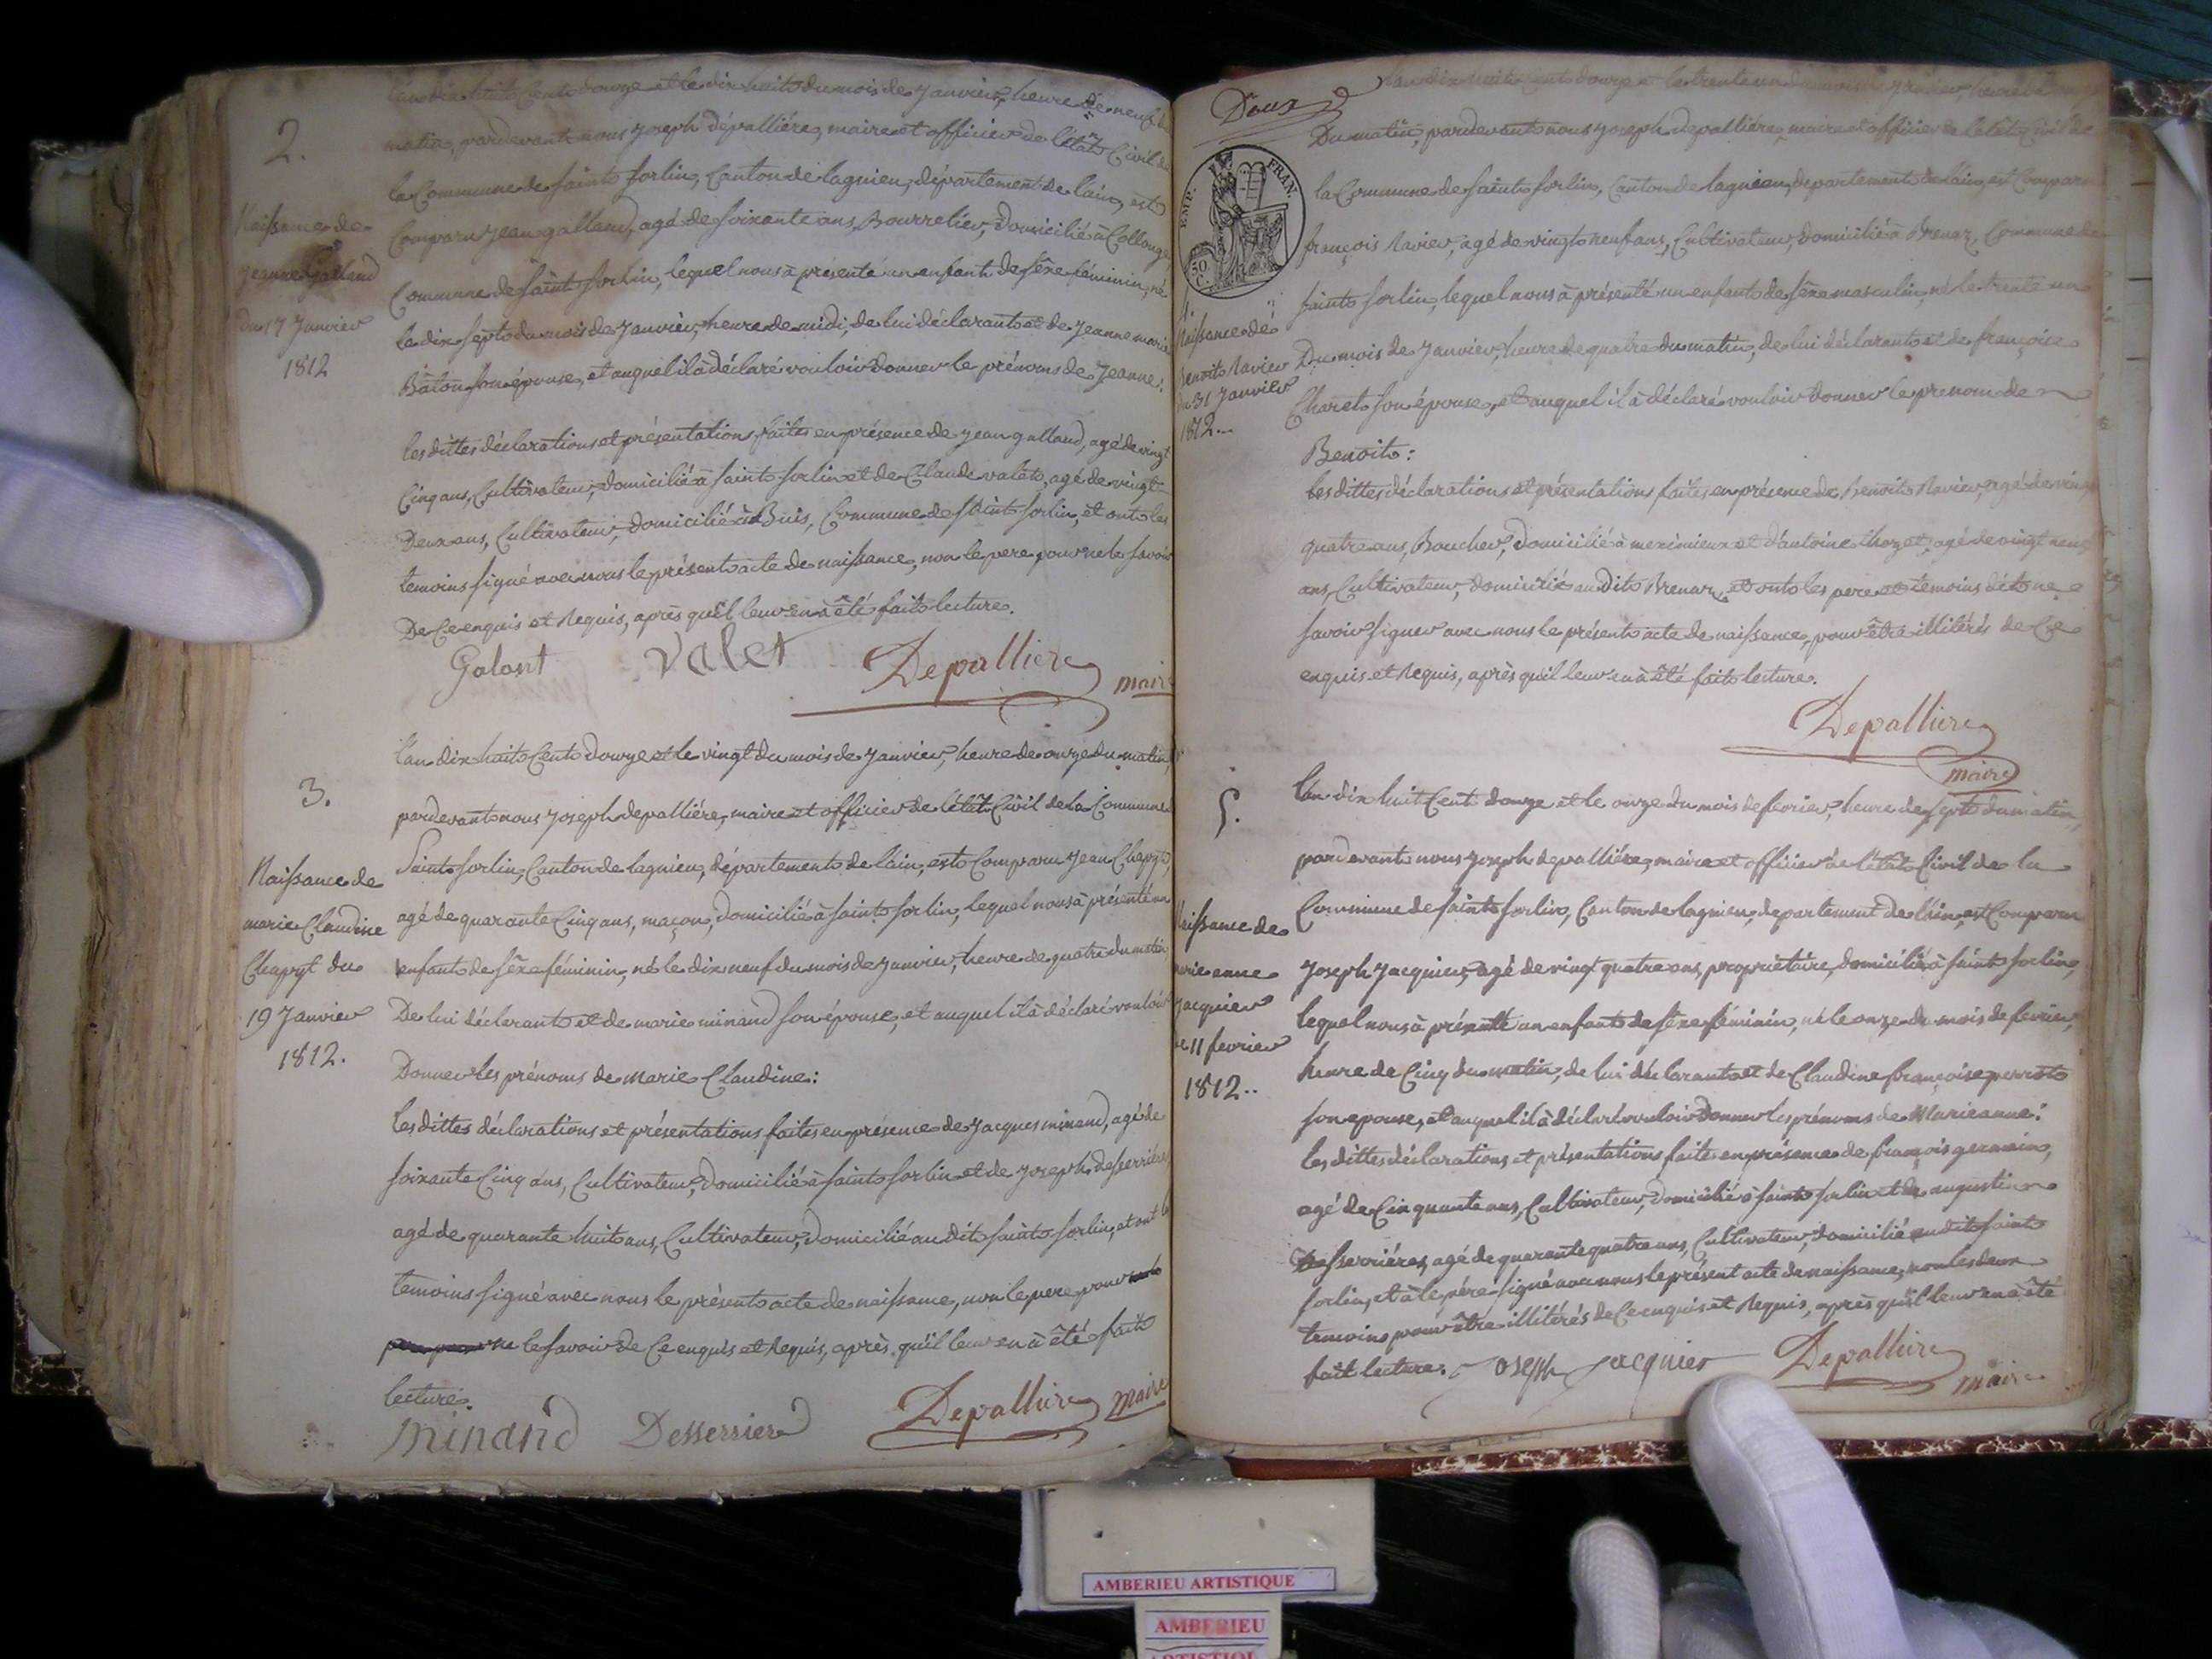 2.
Naissance de
jeanne Galland
du 17 Janvier
1812
L'an dix huit Cent douze et le dix huit du mois de Janvier, heure de neuf du
matin, pardevant nous Joseph dépalliére, maire et officier de l'état Civil de
la Commune de saint sorlin, Canton de lagnieu, département de l'ain, est
Comparu jean galland, agé de soixante ans, Bourrelier, domicilié à Collonge
Commune de saint sorlin, lequel nous à présenté un enfant de sêxe féminin, né
le dix sept du mois de Janvier, heure de midi, de lui déclarant et de Jeanne marie
Bâton son épouse, et auquel il à déclaré vouloir donner le prénoms de Jeanne.
les dittes déclarations et présentations faites en présence de jean galland, agé de vingt
Cinq ans, Cultivateur, domicilié à saint sorlin et de Claude valet, agé de vingt
Deux ans, Cultivateur, domicilié à Buis, Commune de saint sorlin, et ont les
temoins signé avec nous le présent acte de naissance, non le pere pour ne le savoir
De Ce enquis et Requis, après qu'il leur en à été fait lecture.
Galant Valet Depalliere maire
3.
Naissance de
marie Claudine
Chapyt du
19 Janvier
1812.
l'an dix huit Cent douze et le vingt du mois de Janvier, heure de onze du matin,
pardevant nous Joseph depalliére, maire et officier de l'état Civil de la Commune
Saint sorlin, Canton de lagnieu, département de lain, est Comparu Jean Chapyt,
agé de quarante Cinq ans, maçon, domicilié à saint sorlin, lequel nous à présenté un
enfant de sêxe féminin, né le dix neuf du mois de Janvier, heure de quatre du matin,
De lui déclarant et de marie minand son épouse, et auquel il à déclaré vouloir
Donner les prénoms de Marie Claudine:
les dittes déclarations et présentations faites en présence de Jacques minand, agé de
soixante Cinq ans, Cultivateur, domicilié à saint sorlin et de Joseph desserriéres
agé de quarante huit ans, Cultivateur, domicilié au Dit saint sorlin, et ont les
temoins signé avec nous le présent acte de naissance, non le pere pour
ne le savoir de Ce enquis et Requis, après qu'il leur en à été fait
lecture.
minand Desserriere Depalliere Maire
Deux
EMP. FRAN.
50 C.
4.
Naissance de
Benoit Ravier
du 31 Janvier
1812..
l'an dix huit cent douze et le trente un du mois de Janvier heure de
Du matin, pardevant nous Joseph depalliére, maire et officier de l'état Civil de
la Commune de saint sorlin, Canton de lagnieu, département de l'ain, est Comparu
françois Ravier, agé de vingt neuf ans, Cultivateur, domicilié à Brenaz, Commune de
saint sorlin, lequel nous à présenté un enfant de sêxe masculin, né le trente un
Du mois de Janvier, heure de quatre du matin, de lui déclarant et de françoise
Charet son épouse, et auquel il à déclaré vouloir donner le prenom de
Benoit:
les dittes déclarations et présentations faites en présence de Benoit Ravier, agé de vingt
quatre ans, Boucher, domicilié à meximieux et d'antoine thozet, agé de vingt neuf
ans, Cultivateur, domicilié au Dit Brenaz, et ont les pere et temoins dit ne
savoir signer avec nous le présent acte de naissance, pour être illitérés de Ce
enquis et Requis, après qu'il leur en à été fait lecture.
Depalliere
maire
5.
Naissance de
marie anne
Jacquier
du 11 fevrier
1812..
l'an dix huit Cent douze et le onze du mois de fevrier, heure de sept du matin,
pardevant nous Joseph depalliére, maire et officier de l'état Civil de la
Commune de saint sorlin, Canton de lagnieu, département de l'ain, est Comparu
Joseph Jacquier, agé de vingt quatre ans, propriétaire, domicilié à saint sorlin,
lequel nous à présenté un enfant de sêxe féminin, né le onze du mois de fevrier,
heure de Cinq du matin, de lui déclarant et de Claudine françoise perrot
son epouse, et auquel il à déclaré vouloir donner les prénoms de Marie anne:
les dittes déclarations et présentations faites en présence de françois germain,
agé de Cinquante ans, Cultivateur, domicilié à saint sorlin et de augustin
Desserriéres, agé de quarante quatre ans, Cultivateur, domicilié au dit saint
sorlin, et à le pére signé avec nous le présent acte de naissance, non les deux
temoins pour être illitérés de Ce enquis et Requis, après qu'il leur en à été
fait lecture. Joseph Jacquier Depalliere maire
AMBERIEU ARTISTIQUE
AMBERIEU
ARTISTIQUE